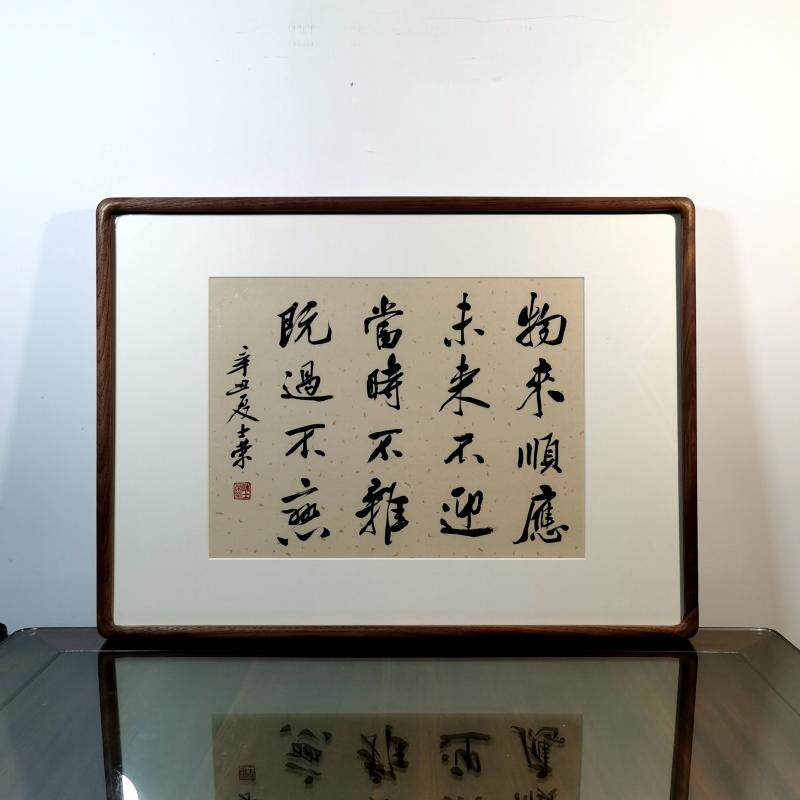 物來順應
未來不迎
當時不雜
既過不戀
辛丑夏士榮